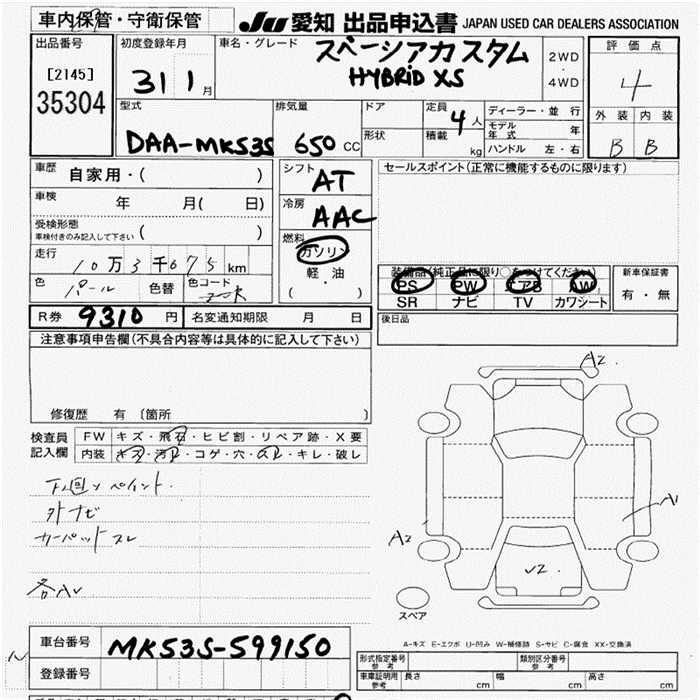 車内保管・守衛保管
JU 愛知 出品申込書 JAPAN USED CAR DEALERS ASSOCIATION
出品番号
[2145]
35304
初度登録年月
31 1 月
車名・グレード
スペーシアカスタム
HYBRID XS
2WD
・
4WD
評価点
4
外装 内装
B B
型式
DAA-MK53S
排気量
650 CC
ドア
形状
定員
4 人
積載
kg
ディーラー・並行
モデル年式 年
ハンドル 左・右
車歴 自家用・( )
車検 年 月( 日)
受検形態
車検付きのみ記入して下さい ( )
走行
10万3千675km
色 パール 色替 色コード
シフト AT
冷房 AAC
燃料
ガソリン
軽・油
( ・ )
セールスポイント(正常に機能するものに限ります)
装備品(純正品に限り○をつけてください)
PS PW エアB AW
SR ナビ TV カワシート
新車保証書
有・無
後日品
R券 9310 円 名変通知期限 月 日
注意事項申告欄(不具合内容等は具体的に記入して下さい)
修復歴 有 〔箇所 〕
検査員
記入欄
FW キズ・飛石・ヒビ割・リペア跡・X要
内装 キズ・汚れ・コゲ・穴・スレ・キレ・破レ
下廻りペイント.
外ナビ
カーペットスレ
各AV
A2.
A1
A2
√2
スペア
A-キズ E-エクボ U-凹み W-補修跡 S-サビ C-腐食 XX-交換済
車台番号 MK53S-599150
登録番号
形式指定番号
参考
類別区分番号
参考
車庫証明用
参考
長さ cm 幅 cm 高さ cm